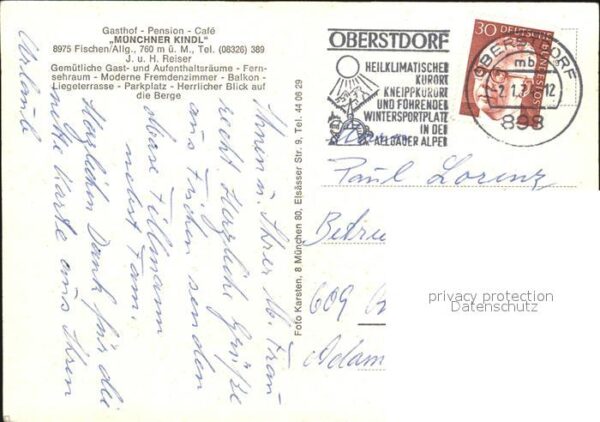 Gasthof - Pension - Café
„MÜNCHNER KINDL"
8975 Fischen/Allg., 760 m ü. M., Tel. (08326) 389
J. u. H. Reiser
Gemütliche Gast- und Aufenthaltsräume - Fern-
sehraum - Moderne Fremdenzimmer - Balkon -
Liegeterrasse - Parkplatz - Herrlicher Blick auf
die Berge
Herzlichen Dank für die
nette Karte aus Ihrem
Urlaub
Ihnen u. Ihrer lb. Frau
recht herzliche Grüße
aus Fischen senden
Max Tillmann
nebst Fam.
Foto Karsten, 8 München 80, Elsässer Str. 9, Tel. 44 06 29
OBERSTDORF
HEILKLIMATISCHER
KURORT
KNEIPPKURORT
UND FÜHRENDER
WINTERSPORTPLATZ
IN DER
ALLGÄUER ALPEN
30
DEUTSCHE BUNDESPOST
OBERSTDORF
mb
2.1.7
12
898
Paul Lorenz
609
Adam
privacy protection
Datenschutz